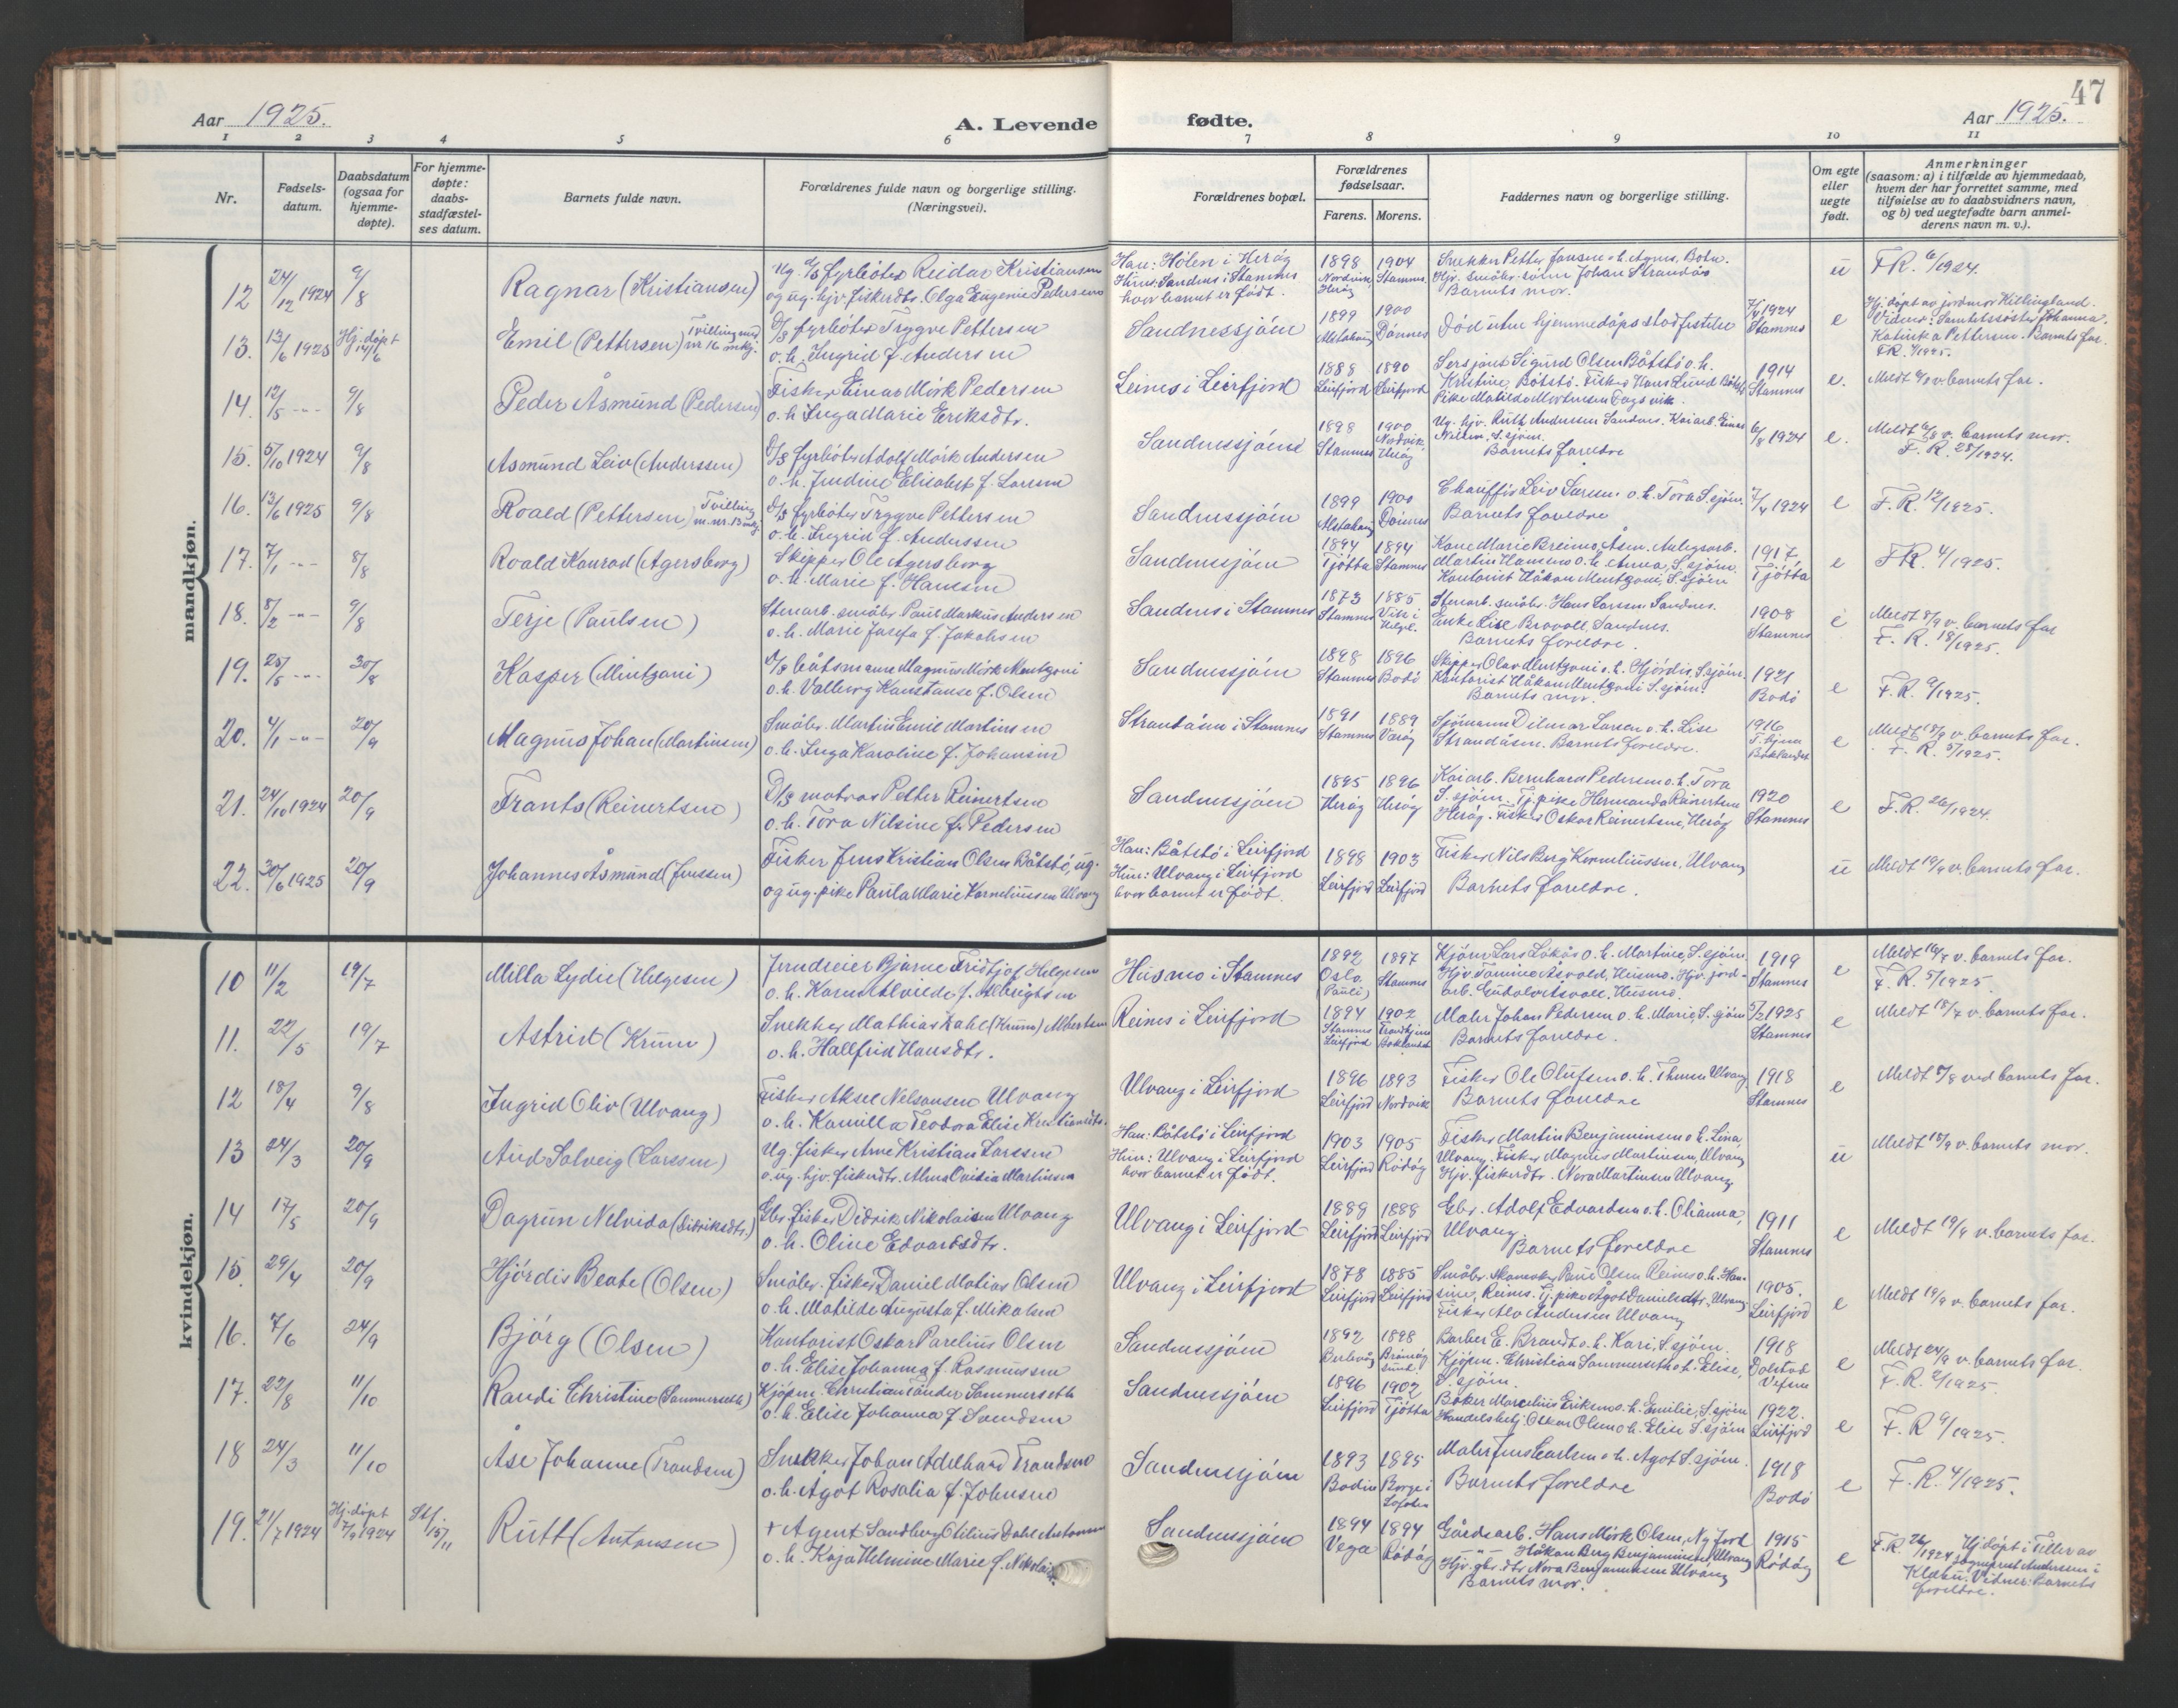 47
Aar 1925.
A. Levende
fødte.
Aar 1925.
1 2 3 4 5 6 7 8 9 10 11
Nr.
Fødsels-
datum.
Daabsdatum
(ogsaa for
hjemme-
døpte).
For hjemme-
døpte:
daabs-
stadfæstel-
ses datum.
Barnets fulde navn.
Forældrenes fulde navn og borgerlige stilling.
(Næringsvei).
Forældrenes bopæl.
Forældrenes
fødselsaar.
Farens. Morens.
Faddernes navn og borgerlige stilling.
Om egte
eller
uegte
født.
Anmerkninger
(saasom: a) i tilfælde av hjemmedaab,
hvem der har forrettet samme, med
tilføielse av to daabsvidners navn,
og b) ved uegtefødte barn anmel-
derens navn m. v.).
mandkjøn.
12 24/12 1924 9/8 Ragnar (Kristiansen)
Ug. D/S fyrbøter Reidar Kristiansen
og ug. hjv. fiskerdtr. Olga Eugenie Pedersen
Han: Hølen i Herøy
Hun: Sandnes i Stamnes
hvor barnet er født.
1898 Nordvik Herøy 1904 Stamnes
Snekker Petter Jensen o. h. Agnes, Botn.
Hjv. småbr. sønn Johan Strandås
Barnets mor.
u F.R. 6/1924.
13. 13/6 1925 Hj. døpt 14/6 Emil (Pettersen) Tvilling med nr 16 mkj.
D/S fyrbøter Trygve Pettersen
o. h. Ingrid f. Andersen
Sandnessjøen
1899 Alstahaug 1900 Dønnes
Død uten hjemmedåps stadfestelse
7/4 1924 Stamnes
e Hj. døpt av jordmor Killingland.
Vidner: Samtetssøster Johanna.
Katinka Pettersen. Barnets far.
F.R. 1/1925.
14. 12/5 -"- 9/8 Peder Åsmund (Pedersen)
Fisker Einar Mørk Pedersen
o. h. Inga Marie Eriksdtr.
Leines i Leirfjord
1888 Leirfjord 1890 Leirfjord
Sersjant Sigurd Olsen Båtstø o. h.
Kristine, Båtstø. Fisker Hans Lund Båtstø
Pike Matilde Mortensen Fagsvik.
1914 Stamnes
e. Meldt 9/8 v. barnets far.
15. 5/10 1924 9/8 Asmund Leiv (Anderssen)
D/S fyrbøter Adolf Mørk Andersen
o. h. Jendine Elisabet f. Larsen
Sandnessjøen
1898 Stamnes 1900 Nordvik Herøy
Ug. hjv. Rutt Andersen Sandnes. Kaiarb. Einar
Nilsen, S.sjøen.
Barnets foreldre
6/8 1924
e. Meldt 6/8 v. barnets mor.
F. R. 28/1924.
16. 13/6 1925 9/8 Roald (Pettersen) Tvilling m. nr. 13 mkj.
D/S fyrbøter Trygve Pettersen
o. h. Ingrid f. Anderssen
Sandnessjøen
1899 Alstahaug 1900 Dønnes
Chauffør Leiv Larsen o. h. Tora S.sjøen.
Barnets foreldre
7/4 1924
e F. R. 12/1925.
17. 7/1 -"- 8/8 Roald Konrad (Agersborg)
Skipper Ole Agersborg
o. h. Marie f. Hansen
Sandnessjøen
1894 Tjøtta 1894 Stamnes
Kone Marie Breimo, Åsen. Anlegsarb.
Martin Hansen o. h. Anna, S.sjøen.
Kontorist Håkon Mentzoni, S.sjøen
1917, Tjøtta
e F.R. 4/1925.
18. 8/2 -"- 9/8 Terje (Paulsen)
Stenarb. småbr. Paul Markus Andersen
o. h. Marie Josefa f. Jakobsen
Sandnes i Stamnes
1873 Stamnes 1885 Vik i Helgel.
Stenarb. småbr. Hans Larsen Sandnes.
Enke Lise Brovoll, Sandnes.
Barnets foreldre.
1908 Stamnes
e Meldt 8/9 v. barnets far
F. R. 18/1925.
19. 25/5 -"- 30/8 Kasper (Mentzoni)
D/S båtsmann Magnus Mørk Mentzoni
o. h. Valborg Konstanse f. Olsen
Sandnessjøen
1898 Stamnes 1896 Bodø
Skipper Olav Mentzoni o. h. Hjørdis, S.sjøen
Kontorist Håkon Mentzoni S.sjøen.
Barnets mor.
1921 Bodø
e F. R. 9/1925.
20. 4/1 -"- 20/9 Magnus Johan (Martinsen)
Småbr. Martin Emil Martinsen
o. h. Inga Karoline f. Johansen
Strandåsen i Stamnes
1891 Stamnes 1889 Værøy
Sjømann Dilmar Larsen o. h. Lise
Strandåsen. Barnets foreldre.
1916 T.hjem Baklandet
e Meldt 18/9 v. barnets far.
F. R. 5/1925.
21. 24/10 1924 20/9 Frants (Reinertsen)
D/S matros Petter Reinertsen
o. h. Tora Nilsine f. Pedersen
Sandnessjøen
1895 Herøy 1896 Herøy
Kaiarb. Bernhard Pedersen o. h. Tora
S.sjøen. Tj. pike Hermanda Reinertsen
Herøy. Fisker Oskar Reinertsen, Herøy
1920 Stamnes
e F.R. 26/1924.
22. 30/6 1925 20/9 Johannes Åsmund (Jenssen)
Fisker Jens Kristian Olsen Båtstø, ug.
og ug. pike Paula Marie Korneliussen Ulvang
Han: Båtstø i Leirfjord
Hun: Ulvang i Leirfjord
hvor barnet er født.
1898 Leirfjord 1903 Leirfjord
Fisker Nils Berg Korneliussen, Ulvang
Barnets foreldre.
u Meldt 19/9 v. barnets far.
kvindekjøn.
10 11/2 19/7 Milla Lydie (Helgesen)
Jendreier Bjarne Fridtjof Helgesen
o. h. Karen Alvilde f. Albrigtsen
Husmo i Stamnes
1892 Oslo (Pauli) 1897 Stamnes
Kjøpm. Lars Løkås o. h. Martine, S.sjøen.
Hjv. Tomine Åsvold, Husmo. Hjv. jord-
arb. Gudolv Åsvoll, Husmo.
1919 Stamnes
e Meldt 16/7 v. barnets far.
F. R. 5/1925.
11. 22/5 19/7 Astrid (Krum)
Snekker Mathias Dahl (Krum) Albertsen
o. h. Hallfrid Hansdtr.
Reines i Leirfjord
1894 Stamnes Leirfjord 1902 Trondhjem Baklandet
Maler Johan Pedersen o. h. Marie, S.sjøen
Barnets foreldre.
5/2 1925 Stamnes
e Meldt 18/7 v. barnets far.
12 18/4 9/8 Ingrid Oliv (Ulvang)
Fisker Aksel Nelsonsen Ulvang
o. h. Kamilla Teodora Elise Kristiansdtr.
Ulvang i Leirfjord
1896 Leirfjord 1893 Nordvik
Fisker Ole Olufsen o. h. Thrine Ulvang
Barnets foreldre
1918 Stamnes
e Meldt 8/8 ved barnets far.
13 24/3 20/9 Aud Solveig (Larssen)
Ug. fisker Arne Kristian Larssen
o. ug. hjv. fiskerdtr. Alma Ovidia Martinsen
Han: Båtstø i Leirfjord
Hun: Ulvang i Leirfjord
hvor barnet er født.
1903 Leirfjord 1905 Rødøy
Fisker Martin Benjaminsen o. h. Lina,
Ulvang. Fisker Magnus Martinsen, Ulvang
Hjv. fiskerdtr. Nora Martinsen Ulvang
u Meldt 18/9 v. barnets mor.
14 17/5 20/9 Dagrun Nelvida (Didriksdtr.)
Gbr. fisker Didrik Nikolaisen Ulvang
o. h. Oline Edvardsdtr.
Ulvang i Leirfjord
1889 Leirfjord 1888 Leirfjord
Gbr. Adolf Edvardsen o. h. Olianna,
Ulvang.
Barnets foreldre
1911 Stamnes
e Meldt 19/9 v. barnets far.
15. 29/4 20/9 Hjørdis Beate (Olsen)
Småbr. fisker Daniel Matias Olsen
o. h. Matilde Augusta f. Mikalsen
Ulvang i Leirfjord
1878 Leirfjord 1885 Leirfjord
Småbr. skomaker Paul Olsen Reines o. h. Han-
sine, Reines. Tj. pike Ågot Danielsdtr., Ulvang
Fisker Alv Andersen Ulvang
1905. Leirfjord
e Meldt 19/9 v. barnets far.
16. 7/6 24/9 Bjørg (Olsen)
Kontorist Oskar Parelius Olsen
o. h. Elise Johanna f. Rasmussen
Sandnessjøen
1892 Buksvåg 1898 Brønnøysund
Barber E. Brandt o. h. Kari, S.sjøen.
Kjøpm. Christian Sommerseth o. h. Elise,
S.sjøen.
1918 Dolstad Vefsen
e Meldt 24/9 v. barnets far.
F. R. 2/1925.
17. 22/8 11/10 Randi Christine (Sommerseth)
Kjøpm. Christian Tander Sommerseth
o. h. Elise Johanna f. Svendsen
Sandnessjøen
1896 Leirfjord 1902 Tjøtta
Baker Marcelius Eriksen o. h. Emilie, S.sjøen
Handelsbetj. Oskar Olsen o. h. Elise S.sjøen
1922. Leirfjord
e F. R 9/1925.
18 24/3 11/10 Åse Johanne (Trondsen)
Snekker Johan Adelhard Trondsen
o. h. Ågot Rosalia f. Johnsen
Sandnessjøen
1893 Bodin 1895 Borge i Lofoten
Maler Jens Carlsen o. h. Agot S.sjøen.
Barnets foreldre
1918 Bodø
e F.R. 4/1925.
19. 21/7 1924 Hj. døpt 7/9 1924 St. 15/11 Rutt (Antonsen)
+ Agent Sandberg Otilius Dahl Antonsen
o. h. Kaja Helmine Marie f. Nikolais
Sandnessjøen
1894 Vega 1894 Rødøy
Gårdsarb. Hans Mørk Olsen, Ny Jord
-"- Håkon Berg Benjaminsen Ulvang
Hjv. gbr. dtr. Nora Benjaminsen Ulvang
Barnets mor.
1915 Rødøy
e F.R. 26/1924 Hj. døpt i Tiller av
sogneprest Andersen i
Klæbu. Vidner: Barnets
foreldre.